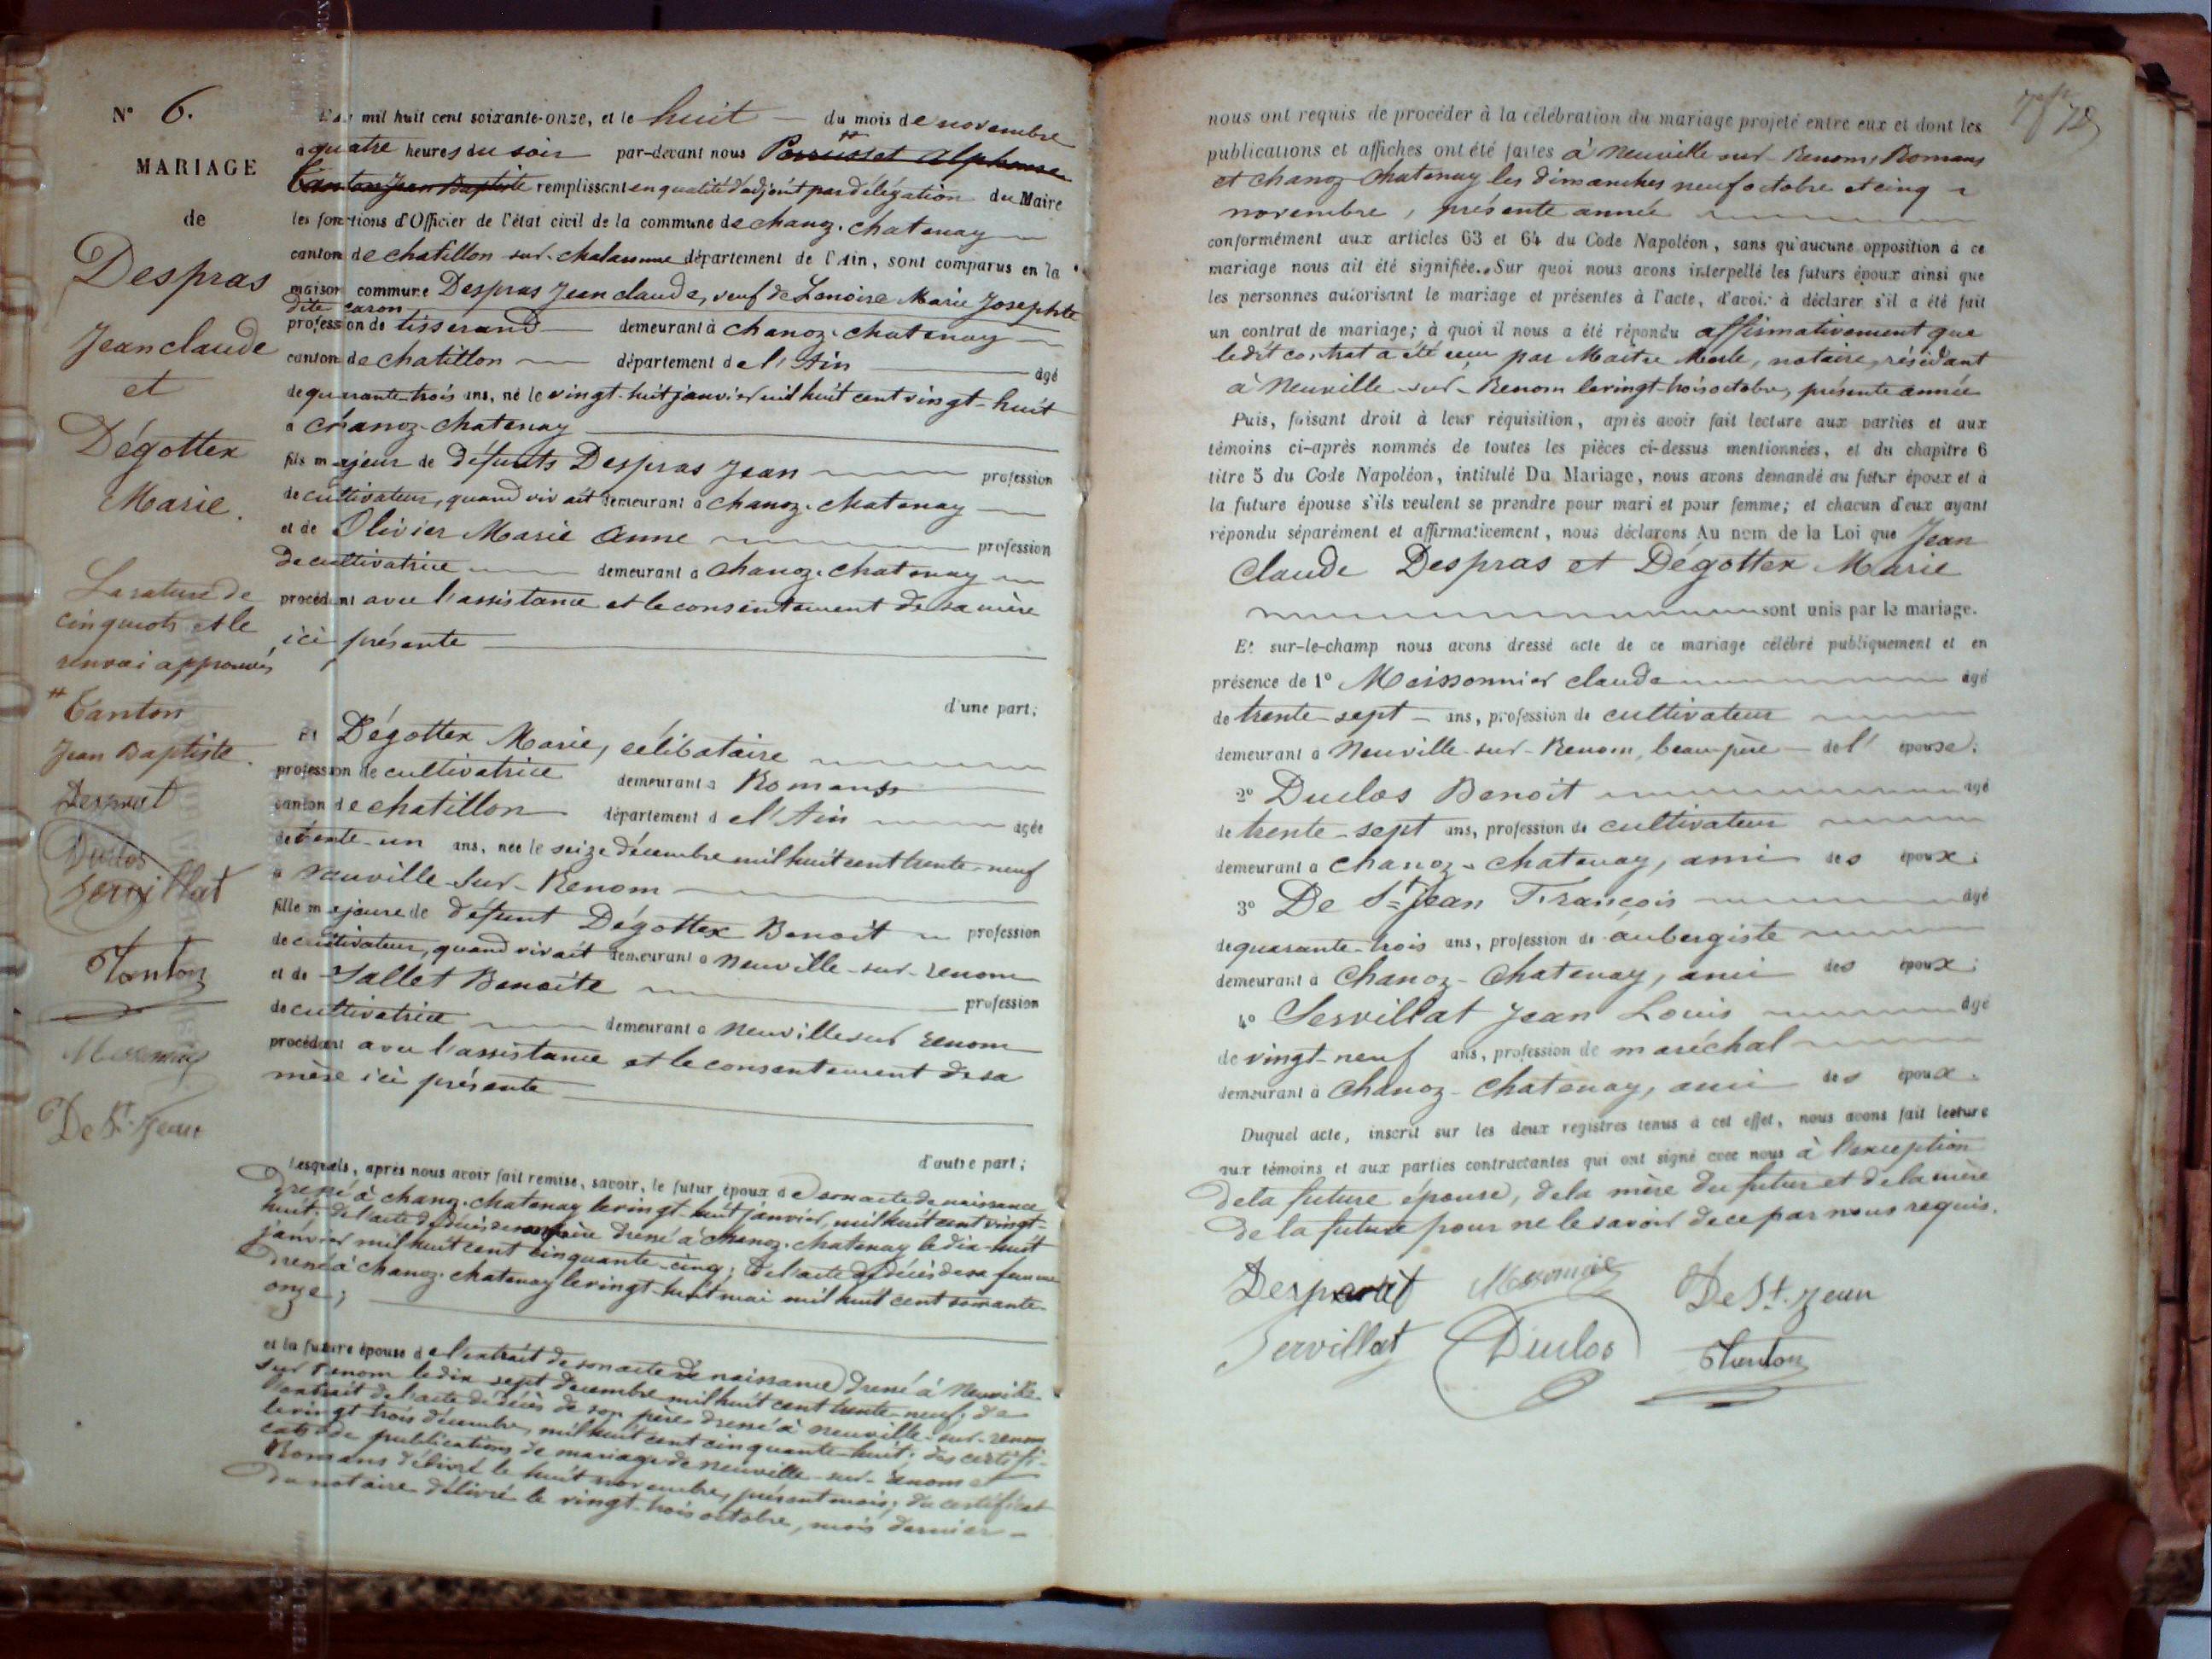 N° 6.
MARIAGE
de
Despras
Jean claude
et
Dégottex
Marie.
La rature de
cinq mots et le
renvoi approuvés
# Tanton
Jean Baptiste.
Desprat
Duclos
Servillat
Tanton
De St. Jean
L'an mil huit cent soixante-onze, et le huit — du mois de novembre
à quatre heures du soir par-devant nous # Perrusset Alphonse
Tanton Jean Baptiste remplissant en qualité d'adjoint par délégation du Maire
les fonctions d'Officier de l'état civil de la commune de chanoz-chatenay
canton de chatillon sur-chalaronne département de l'Ain, sont comparus en la
maison commune Despras Jean claude, veuf de Lenoire Marie Josephte
dite caron
profession de tisserand demeurant à chanoz-chatenay
canton de chatillon département de l'Ain âgé
de quarante trois ans, né le vingt-huit janvier mil huit cent vingt-huit
à chanoz-chatenay
fils majeur de défunts Despras Jean profession
de cultivateur, quand vivait demeurant à chanoz-chatenay
et de Olivier Marie Anne profession
de cultivatrice demeurant à chanoz-chatenay
procédant avec l'assistance et le consentement de sa mère
ici présente
d'une part;
Et Dégottex Marie, célibataire
profession de cultivatrice demeurant à Romans
canton de chatillon département de l'Ain âgée
de trente-un ans, née le seize décembre mil huit cent trente-neuf
à Neuville-sur-Renom
fille majeure de défunt Dégottex Benoit profession
de cultivateur, quand vivait demeurant à Neuville-sur-renom
et de Sallet Benoite profession
de cultivatrice demeurant à Neuville sur renom
procédant avec l'assistance et le consentement de sa
mère ici présente
d'autre part;
Lesquels, après nous avoir fait remise, savoir, le futur époux de son acte de naissance
dressé à chanoz-chatenay le vingt-huit janvier, mil huit cent vingt-
huit; de l'acte de décès de son père dressé à chanoz-chatenay le dix-huit
janvier mil huit cent cinquante-cinq; de l'acte de décès de sa femme
dressé à chanoz-chatenay le vingt-huit mai mil huit cent soixante-
onze;
et la future épouse de l'extrait de son acte de naissance dressé à Neuville
sur renom le dix sept décembre mil huit cent trente-neuf; de
l'extrait de l'acte de décès de son père dressé à Neuville-sur-renom
le vingt trois décembre, mil huit cent cinquante-huit; des certifi-
cats de publications de mariage de Neuville-sur-renom et
Romans délivré le huit novembre, présent mois; du certificat
du notaire délivré le vingt-trois octobre, mois dernier —
72
nous ont requis de procéder à la célébration du mariage projeté entre eux et dont les
publications et affiches ont été faites à Neuville-sur-Renom, Romans
et chanoz-chatenay les dimanches neuf octobre et cinq
novembre, présente année
conformément aux articles 63 et 64 du Code Napoléon, sans qu'aucune opposition à ce
mariage nous ait été signifiée. Sur quoi nous avons interpellé les futurs époux ainsi que
les personnes autorisant le mariage et présentes à l'acte, d'avoir à déclarer s'il a été fait
un contrat de mariage; à quoi il nous a été répondu affirmativement que
ledit contrat a été reçu par Maitre Merle, notaire, résidant
à Neuville-sur-Renom le vingt-trois octobre, présente année
Puis, faisant droit à leur réquisition, après avoir fait lecture aux parties et aux
témoins ci-après nommés de toutes les pièces ci-dessus mentionnées, et du chapitre 6
titre 5 du Code Napoléon, intitulé Du Mariage, nous avons demandé au futur époux et à
la future épouse s'ils veulent se prendre pour mari et pour femme; et chacun d'eux ayant
répondu séparément et affirmativement, nous déclarons Au nom de la Loi que Jean
Claude Despras et Dégottex Marie
sont unis par le mariage.
Et sur-le-champ nous avons dressé acte de ce mariage célébré publiquement et en
présence de 1° Meissonnier claude âgé
de trente-sept — ans, profession de cultivateur
demeurant à Neuville-sur-Renom, beau-père — de l' épouse;
2° Duclos Benoit âgé
de trente-sept ans, profession de cultivateur
demeurant à chanoz-chatenay, ami des époux;
3° De St Jean François âgé
de quarante-trois ans, profession de aubergiste
demeurant à Chanoz-Chatenay, ami des époux;
4° Servillat Jean Louis âgé
de vingt-neuf ans, profession de maréchal
demeurant à Chanoz-Chatenay, ami des époux.
Duquel acte, inscrit sur les deux registres tenus à cet effet, nous avons fait lecture
aux témoins et aux parties contractantes qui ont signé avec nous à l'exception
de la future épouse, de la mère du futur et de la mère
de la future pour ne le savoir de ce par nous requis.
Desprat
De St. Jean
Servillat
Duclos
Tanton